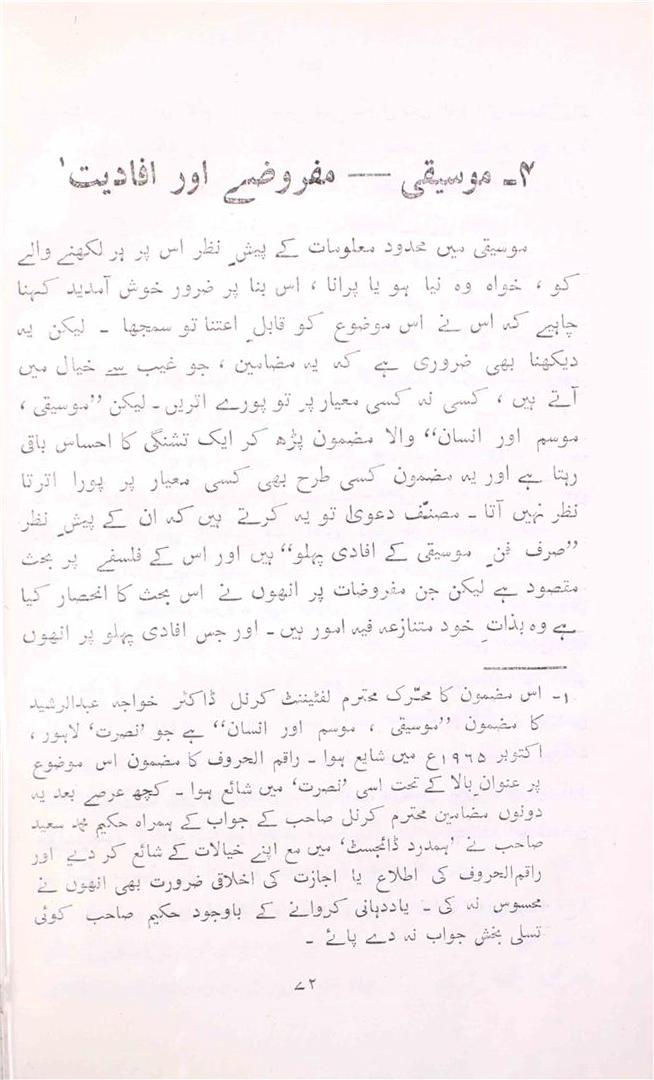 ۴۔ موسیقی — مفروضے اور افادیت'
موسیقی میں محدود معلومات کے پیشِ نظر اس پر ہر لکھنے والے
کو ، خواہ وہ نیا ہو یا پرانا ، اس بنا پر ضرور خوش آمدید کہنا
چاہیے کہ اس نے اس موضوع کو قابلِ اعتنا تو سمجھا ۔ لیکن یہ
دیکھنا بھی ضروری ہے کہ یہ مضامین ، جو غیب سے خیال میں
آتے ہیں ، کسی نہ کسی معیار پر تو پورے اتریں ۔ لیکن ”موسیقی ،
موسم اور انسان“ والا مضمون پڑھ کر ایک تشنگی کا احساس باقی
رہتا ہے اور یہ مضمون کسی طرح بھی کسی معیار پر پورا اترتا
نظر نہیں آتا ۔ مصنّف دعویٰ تو یہ کرتے ہیں کہ ان کے پیشِ نظر
”صرف فنِ موسیقی کے افادی پہلو“ ہیں اور اس کے فلسفے پر بحث
مقصود ہے لیکن جن مفروضات پر انھوں نے اس بحث کا انحصار کیا
ہے وہ بذاتِ خود متنازعہ فیہ امور ہیں ۔ اور جس افادی پہلو پر انھوں
۱۔ اس مضمون کا محرّک محترم لفٹیننٹ کرنل ڈاکٹر خواجہ عبدالرشید
کا مضمون ”موسیقی ، موسم اور انسان“ ہے جو ’نصرت‘ لاہور ،
اکتوبر ۱۹۶۵ع میں شایع ہوا ۔ راقم الحروف کا مضمون اس موضوع
پر عنوانِ بالا کے تحت اسی ’نصرت‘ میں شائع ہوا ۔ کچھ عرصے بعد یہ
دونوں مضامین محترم کرنل صاحب کے جواب کے ہمراہ حکیم محمد سعید
صاحب نے ’ہمدرد ڈائجسٹ‘ میں مع اپنے خیالات کے شائع کر دیے اور
راقم‌الحروف کی اطلاع یا اجازت کی اخلاقی ضرورت بھی انھوں نے
محسوس نہ کی ۔ یاددہانی کروانے کے باوجود حکیم صاحب کوئی
تسلی بخش جواب نہ دے پائے ۔
۷۲